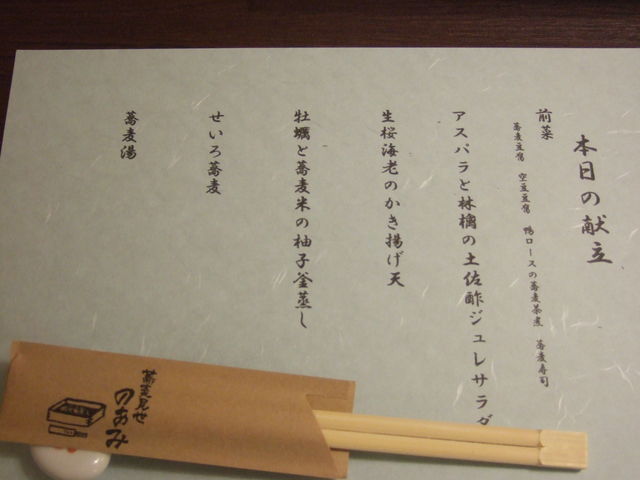 本日の献立
前菜
蕎麦豆腐 空豆豆腐 鴨ロースの蕎麦茶煮 蕎麦寿司
アスパラと林檎の土佐酢ジュレサラダ
生桜海老のかき揚げ天
牡蠣と蕎麦米の柚子釜蒸し
せいろ蕎麦
蕎麦湯
蕎麦見世
のあみ